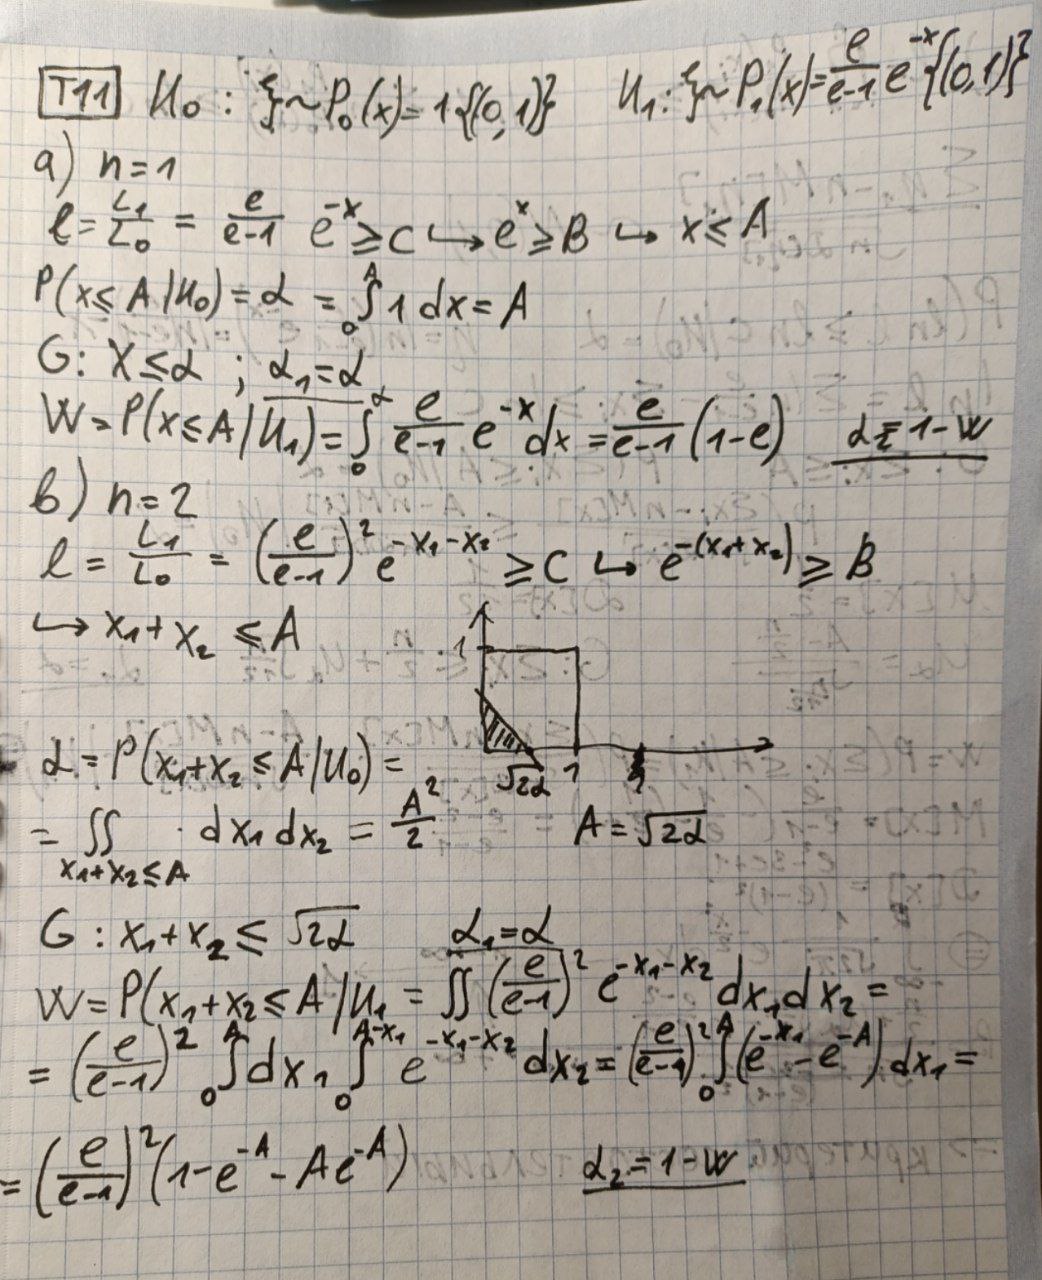 T11 H₀ : ξ ~ P₀(x) = 1{(0,1)} H₁ : ξ ~ P₁(x) = e/(e-1) e^{-x} {(0,1)}
a) n = 1
l = L₁/L₀ = e/(e-1) e^{-x} ≥ C ↪ e^{x} ≥ B ↪ x ≤ A
P(x ≤ A | H₀) = α = ∫₀^A 1 dx = A
G: X ≤ α ; α₁ = α
W = P(x ≤ A | H₁) = ∫₀^α e/(e-1) e^{-x} dx = e/(e-1) (1-e) α₂ = 1-W
b) n = 2
l = L₁/L₀ = (e/(e-1))² e^{-x₁-x₂} ≥ C ↪ e^{-(x₁+x₂)} ≥ B
↪ x₁ + x₂ ≤ A
1
√2α 1
α = P(x₁+x₂ ≤ A | H₀) =
= ∬_{x₁+x₂≤A} · dx₁ dx₂ = A²/2 A = √2α
G : x₁ + x₂ ≤ √2α α₁ = α
W = P(x₁+x₂ ≤ A | H₁ = ∬ (e/(e-1))² e^{-x₁-x₂} dx₁ dx₂ =
= (e/(e-1))² ∫₀^A dx₁ ∫₀^{A-x₁} e^{-x₁-x₂} dx₂ = (e/(e-1))² ∫₀^A (e^{-x₁} - e^{-A}) dx₁ =
= (e/(e-1))² (1 - e^{-A} - Ae^{-A}) α₂ = 1-W